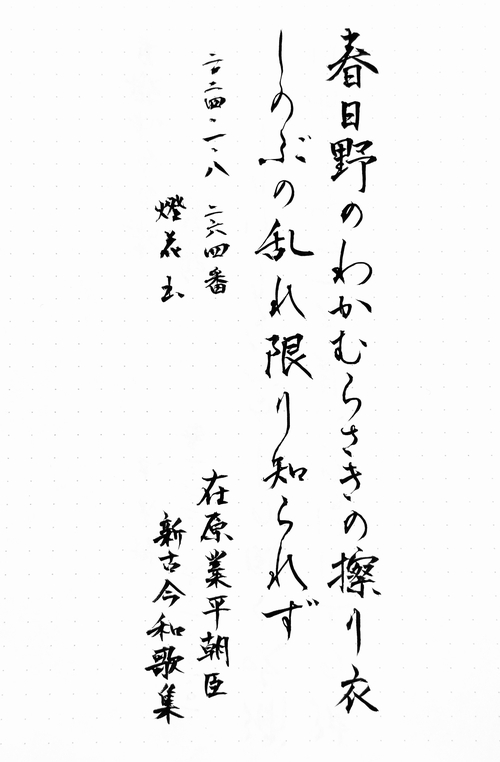 春日野のわかむらさきの擦り衣
しのぶの乱れ限り知られず
二〇二四・一・八 二六四番
在原業平朝臣
燈花
新古今和歌集